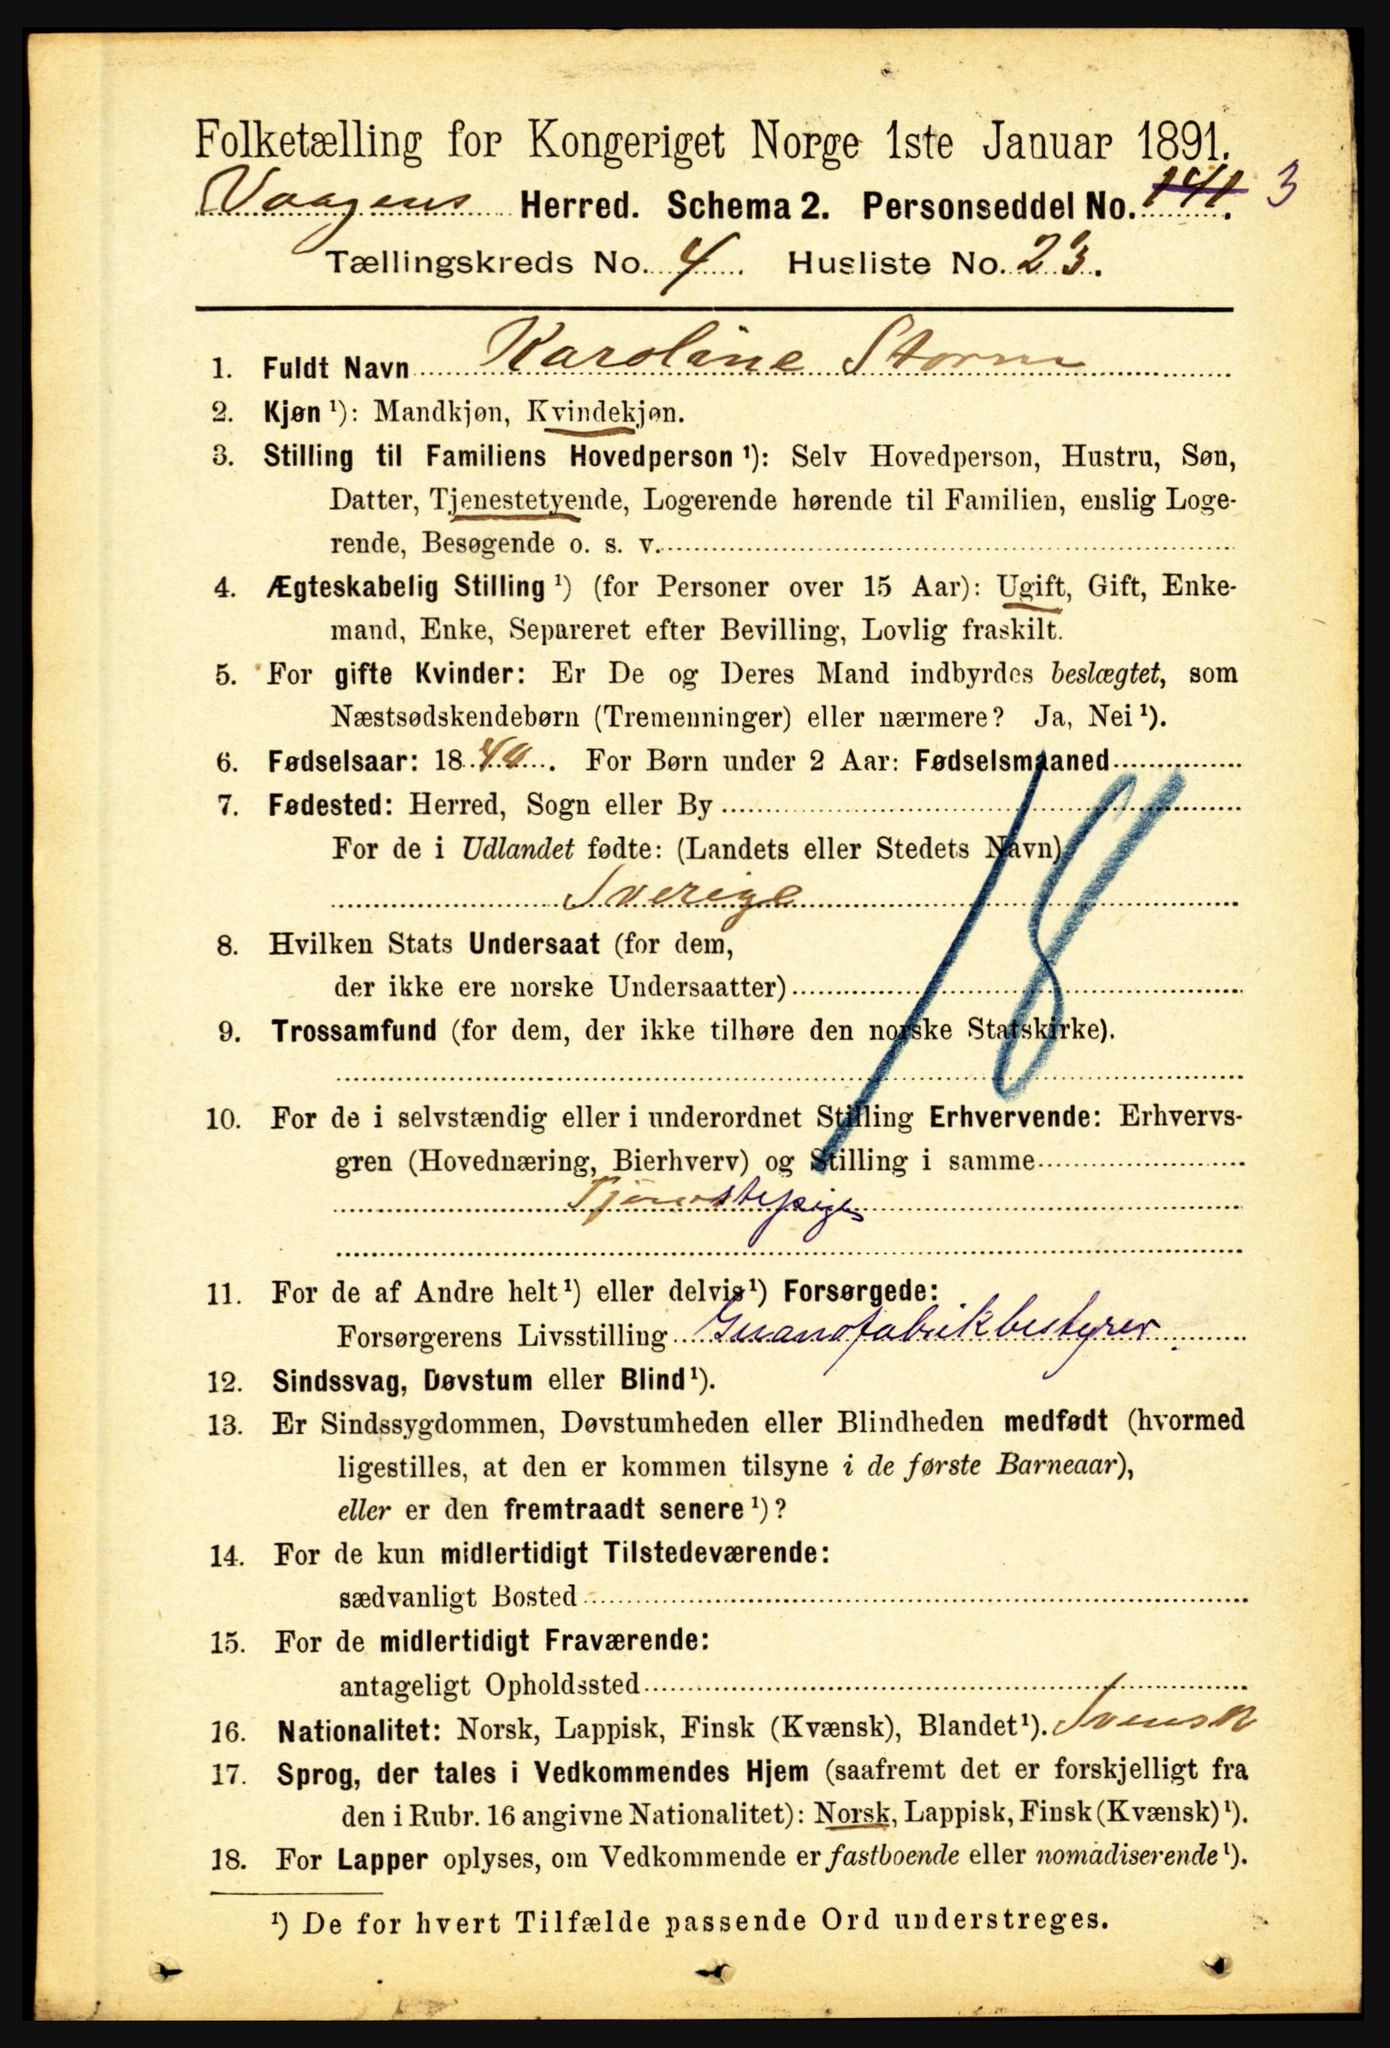 Folketælling for Kongeriget Norge 1ste Januar 1891.
Vaagens Herred. Schema 2. Personseddel No. 141. 3
Tællingskreds No. 4. Husliste No. 23.
1. Fuldt Navn Karoline Storm
2. Kjøn ¹): Mandkjøn, Kvindekjøn.
3. Stilling til Familiens Hovedperson ¹): Selv Hovedperson, Hustru, Søn,
Datter, Tjenestetyende, Logerende hørende til Familien, enslig Loge-
rende, Besøgende o. s. v.
4. Ægteskabelig Stilling ¹) (for Personer over 15 Aar): Ugift, Gift, Enke-
mand, Enke, Separeret efter Bevilling, Lovlig fraskilt.
5. For gifte Kvinder: Er De og Deres Mand indbyrdes beslægtet, som
Næstsødskendebørn (Tremenninger) eller nærmere? Ja, Nei ¹).
6. Fødselsaar: 1840. For Børn under 2 Aar: Fødselsmaaned
7. Fødested: Herred, Sogn eller By
For de i Udlandet fødte: (Landets eller Stedets Navn)
Sverige
18
8. Hvilken Stats Undersaat (for dem,
der ikke ere norske Undersaatter)
9. Trossamfund (for dem, der ikke tilhøre den norske Statskirke).
10. For de i selvstændig eller i underordnet Stilling Erhvervende: Erhvervs-
gren (Hovednæring, Bierhverv) og Stilling i samme
Tjenestepige
11. For de af Andre helt ¹) eller delvis ¹) Forsørgede:
Forsørgerens Livsstilling Guanofabrikbestyrer
12. Sindssvag, Døvstum eller Blind ¹).
13. Er Sindssygdommen, Døvstumheden eller Blindheden medfødt (hvormed
ligestilles, at den er kommen tilsyne i de første Barneaar),
eller er den fremtraadt senere ¹)?
14. For de kun midlertidigt Tilstedeværende:
sædvanligt Bosted
15. For de midlertidigt Fraværende:
antageligt Opholdssted
16. Nationalitet: Norsk, Lappisk, Finsk (Kvænsk), Blandet ¹). Svensk
17. Sprog, der tales i Vedkommendes Hjem (saafremt det er forskjelligt fra
den i Rubr. 16 angivne Nationalitet): Norsk, Lappisk, Finsk (Kvænsk) ¹).
18. For Lapper oplyses, om Vedkommende er fastboende eller nomadiserende ¹).
¹) De for hvert Tilfælde passende Ord understreges.